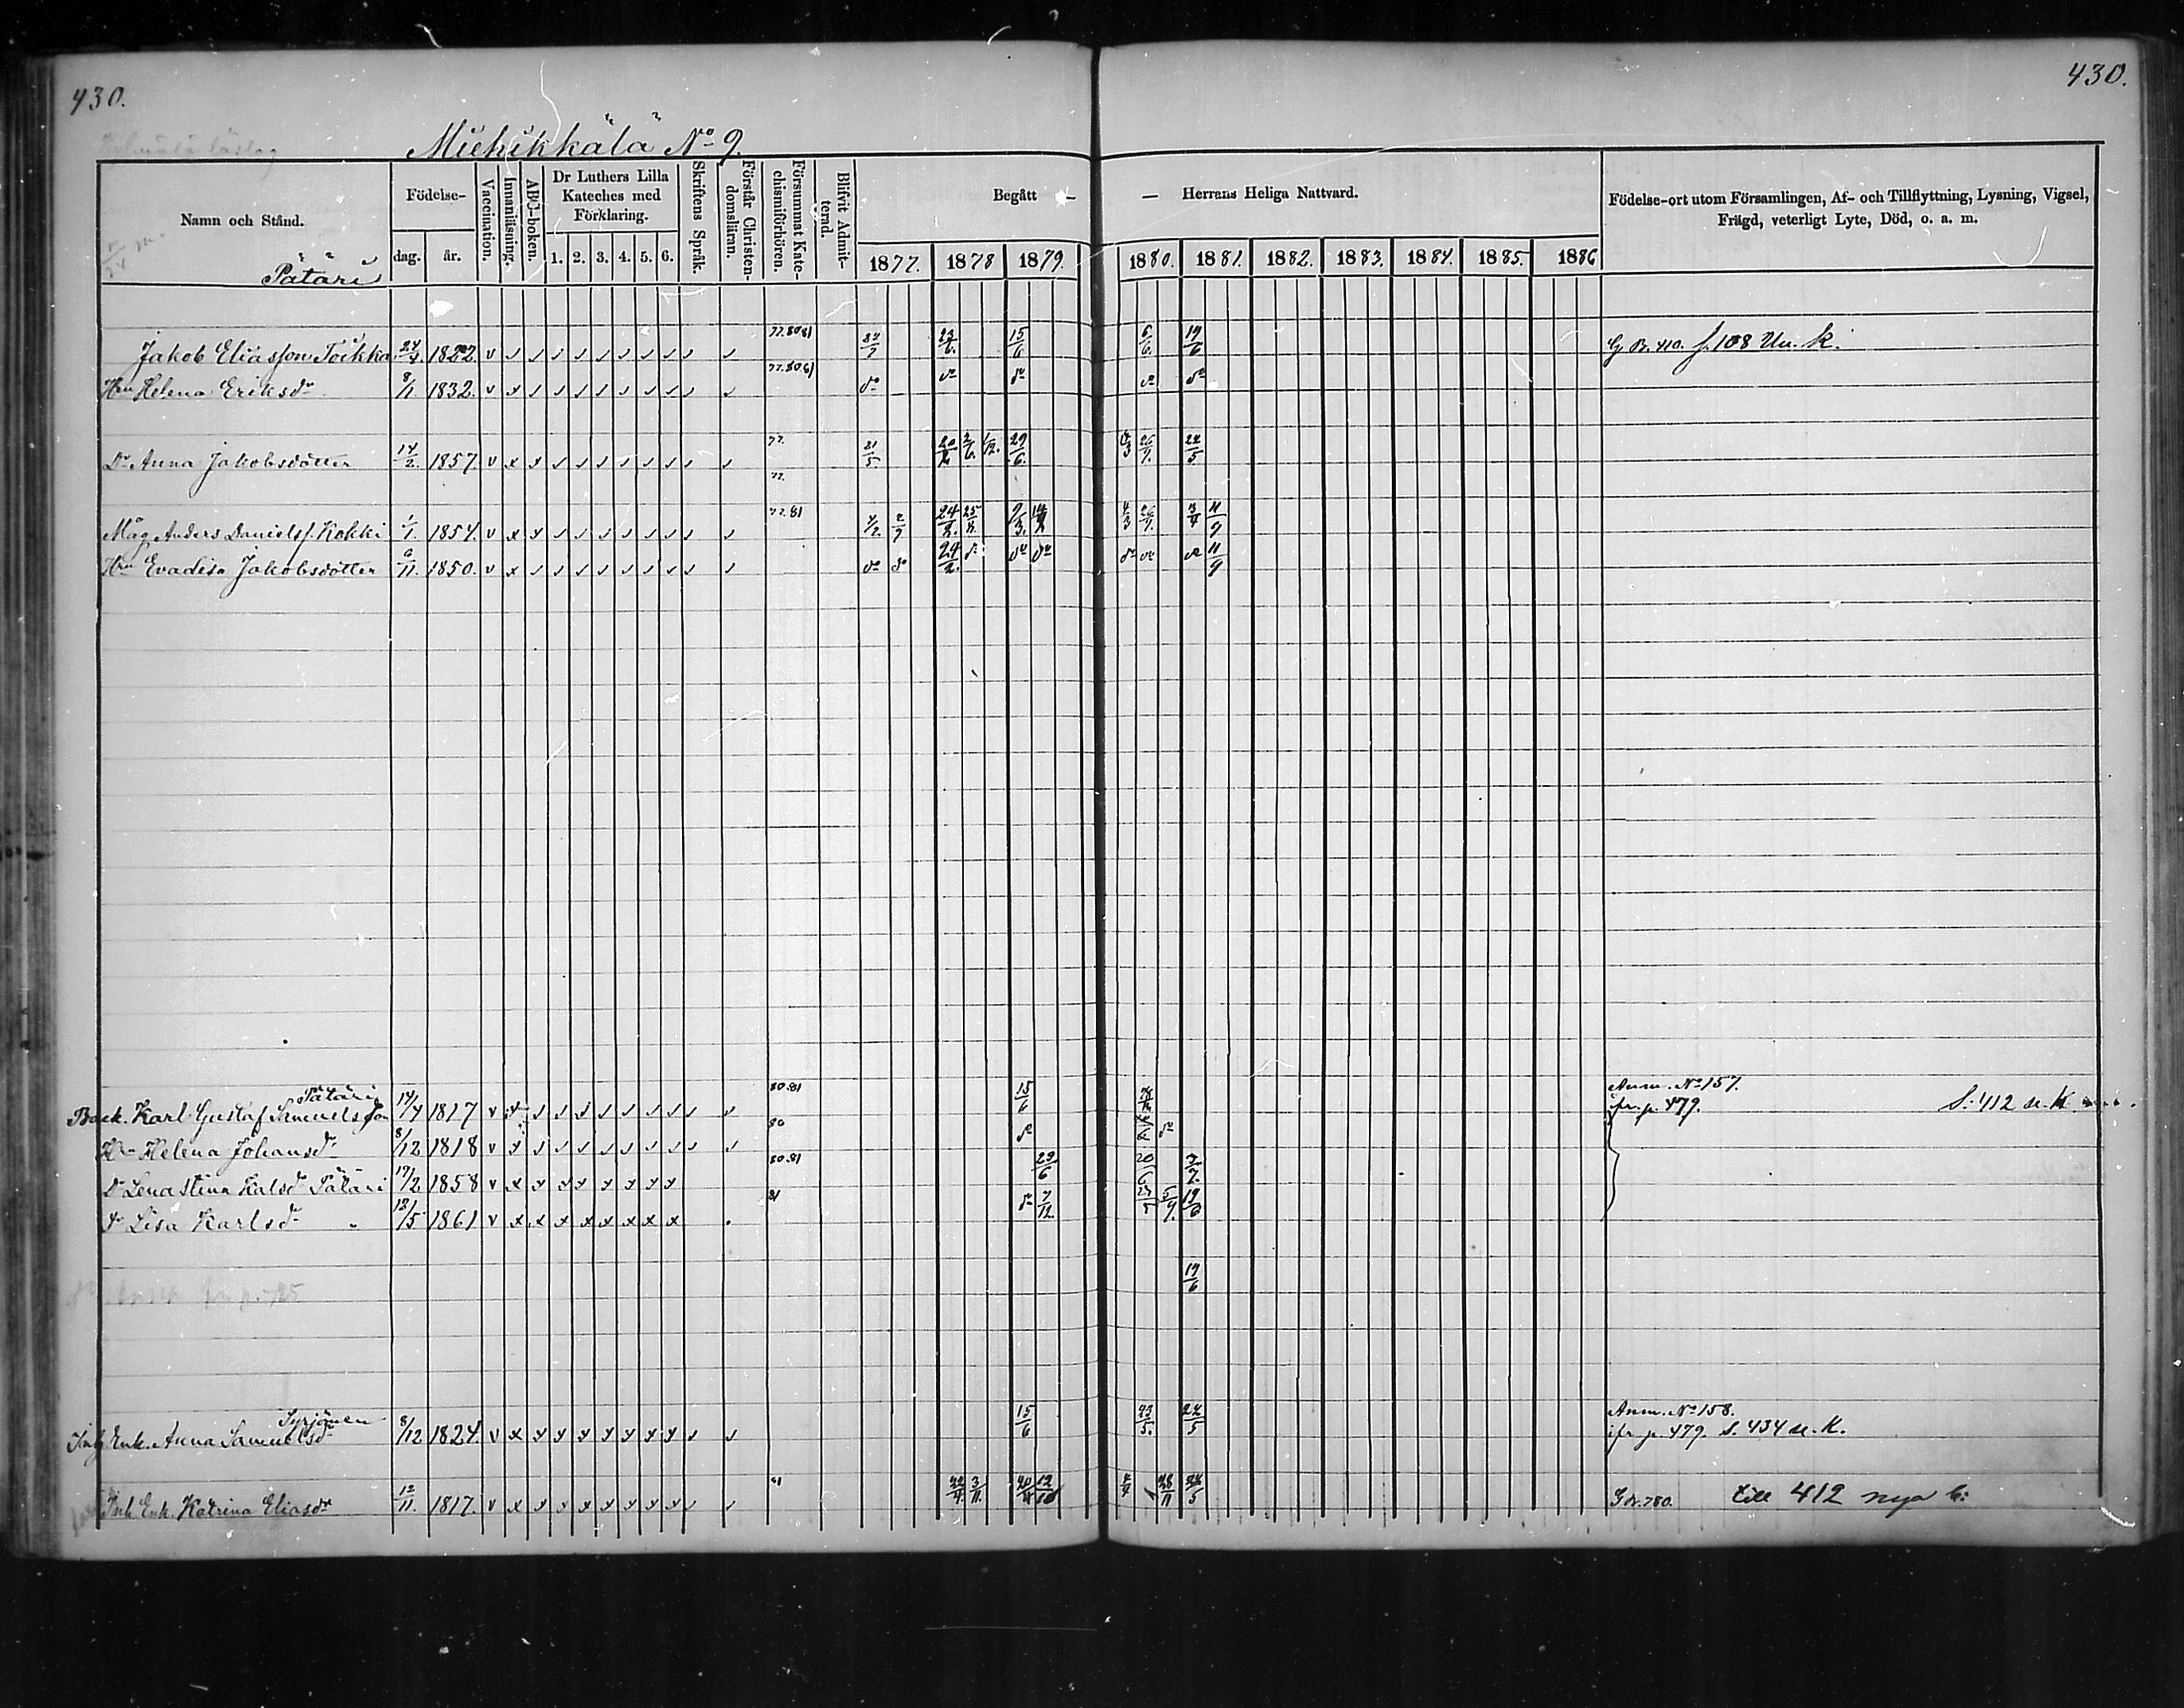 430.
430.
Miehikkälä No 9.
Namn och Stånd.
Födelse-
dag.
år.
Vaccination.
Innanläsning.
ABC-boken.
Dr Luthers Lilla Kateches med Förklaring.
1. 2. 3. 4. 5. 6.
Skriftens Språk.
Förstår Christendomsläran.
Försummat Katechismiförhören.
Blifvit Admitterad.
Begått — — Herrans Heliga Nattvard.
1877. 1878 1879. 1880. 1881. 1882. 1883. 1884. 1885. 1886
Födelse-ort utom Församlingen, Af- och Tillflyttning, Lysning, Vigsel,
Frägd, veterligt Lyte, Död, o. a. m.
Pätäri
Jakob Eliasson Toikka 1822. v 77.80 81 15/6 6/6. 19/6 s. 108 Un. k.
Hru Helena Eriksdr 8/1 1832. v do do do do do
Dr Anna Jakobsdotter 14/2. 1857. v 77. 21/5 29/6. 22/5
77.
Måg Anders Danielss. Kokki 1/1. 1854. v 77.81 11/9
Hru Evadisa Jakobsdotter 6/11. 1850. v do do 24/2. do do do do do do 11/9
Pätäri
Back. Karl Gustaf Samuelsson 14/4 1817 v 80.81 15/6 Anm. No 157.
ifr. p. 479. S. 412 n. k
Hru Helena Johansdr 8/12 1818 v 80 do do
Dr Lenastina Kalsdr Pätäri 17/2 1858 v 80.81 29/6 20/6
Dr Lisa Karlsdr 12/5 1861 v 81 do 7/12 5/9. 19/6
19/6
Syrjönen
Inh Enk. Anna Samuelsdr 8/12 1824. v 15/6 23/5. 22/5 Anm. No 158.
ifr p. 479. S. 434 n. k.
Inh. Enk. Katrina Eliasdr 12/11. 1817. v 81 3/11. 28/11 till 412 nya b: